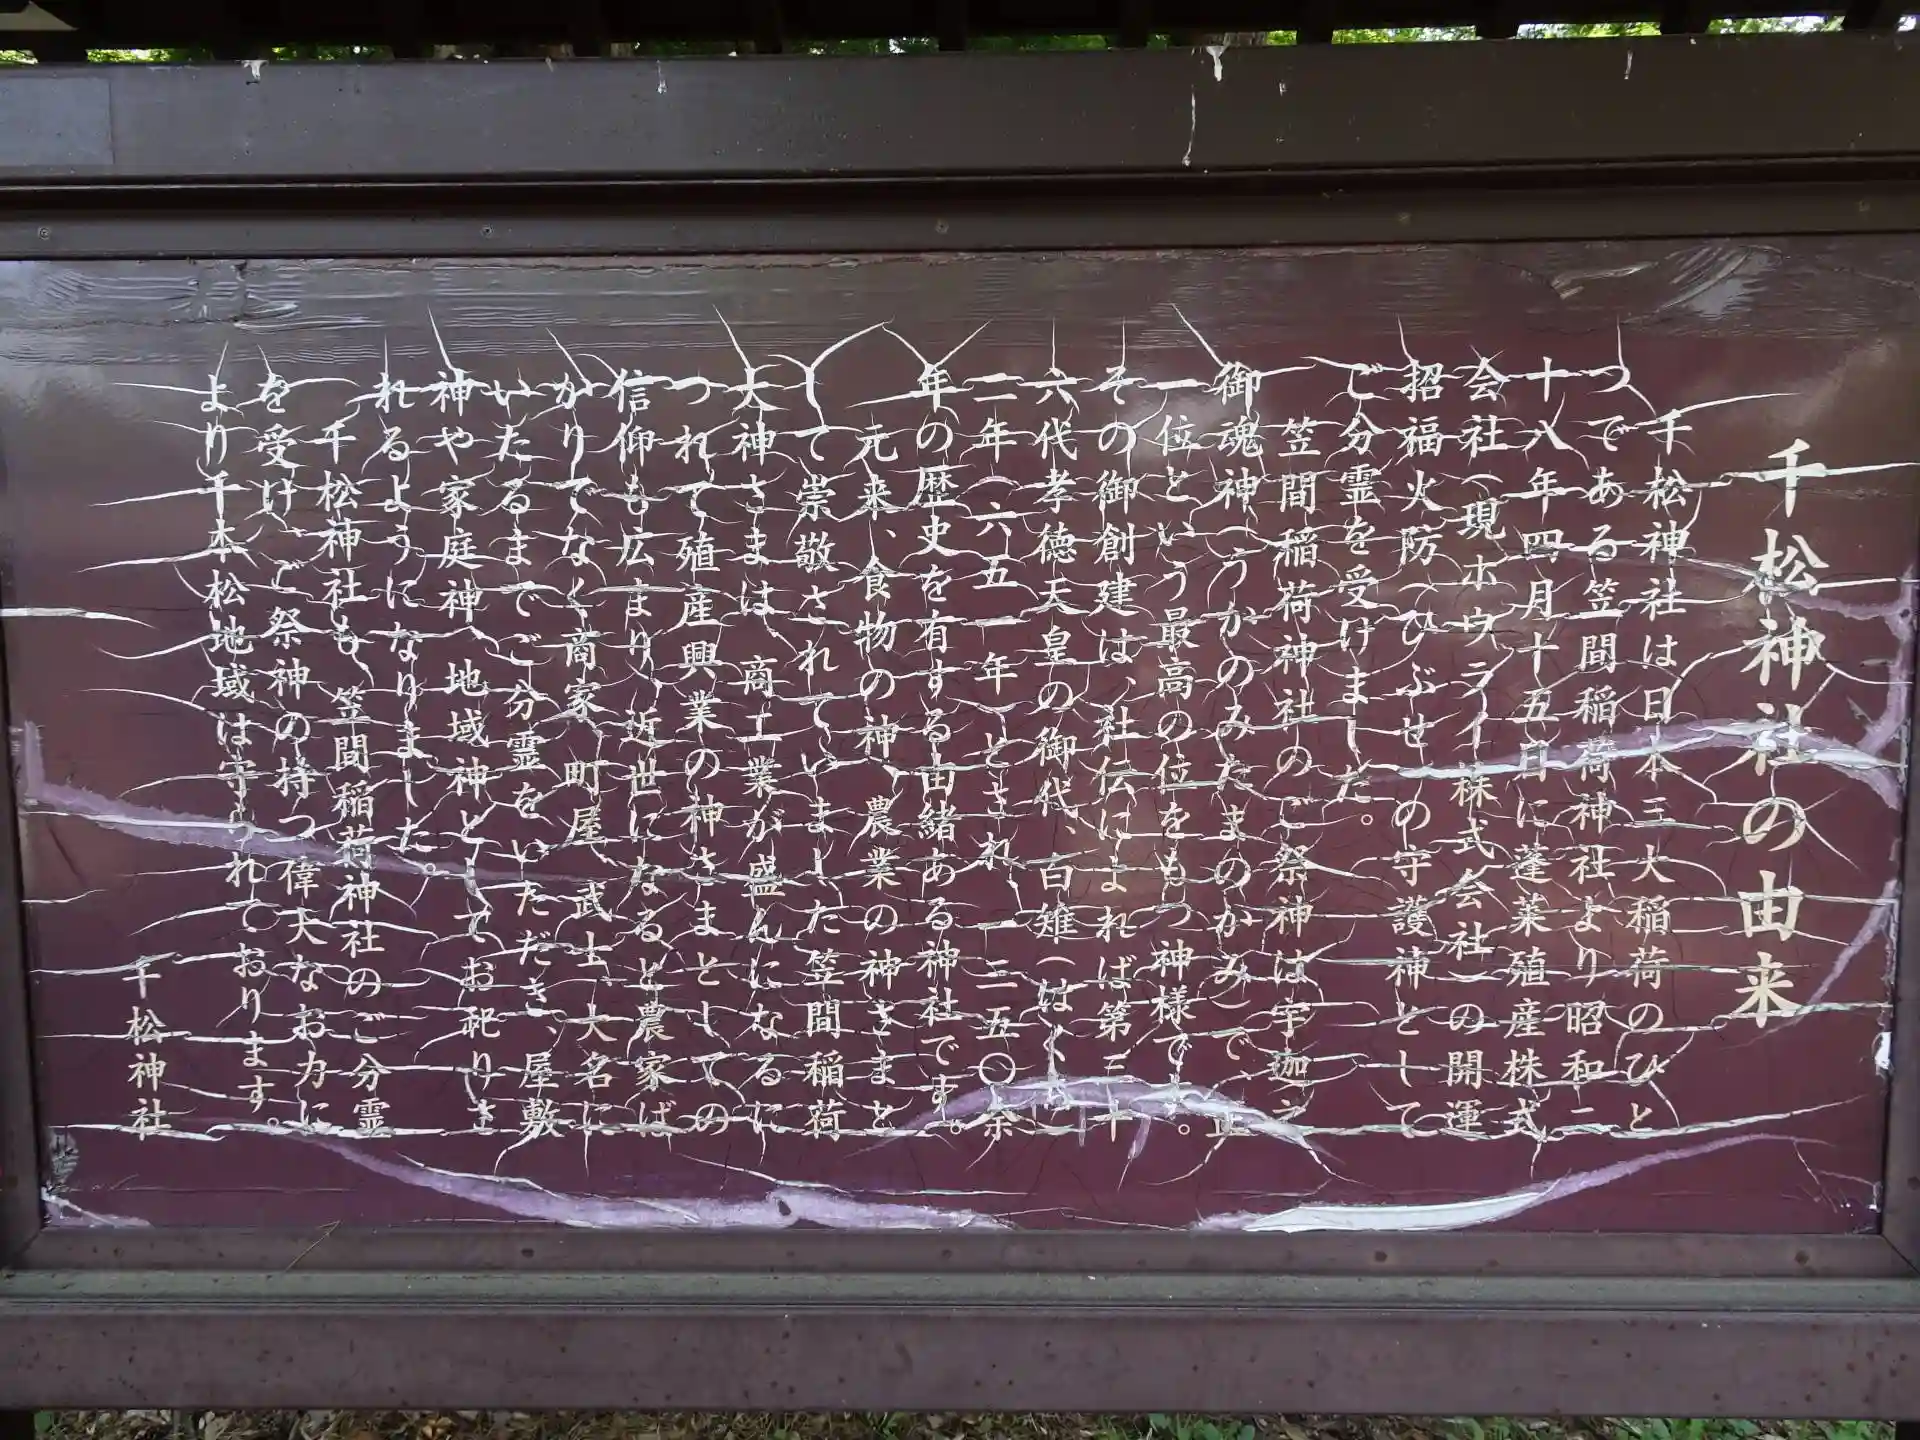 千松神社の由来
千松神社は日本三大稲荷のひと
つである笠間稲荷神社より昭和二
十八年四月十五日に蓬莱殖産株式
会社(現ホウライ株式会社)の開運
招福火防(ひぶせ)の守護神として
ご分霊を受けました。
笠間稲荷神社のご祭神は宇迦之
御魂神(うかのみたまのかみ)で、正
一位という最高の位をもつ神様です。
その御創建は、社伝によれば第三十
六代孝徳天皇の御代、白雉(はくち)
二年(六五一年)とされ、一三五〇余
年の歴史を有する由緒ある神社です。
元来、食物の神、農業の神さまと
して崇敬されていました笠間稲荷
大神さまは、商工業が盛んになるに
つれて殖産興業の神さまとしての
信仰も広まり、近世になると農家ば
かりでなく、商家、町屋、武士、大名に
いたるまでご分霊をいただき、屋敷
神や家庭神、地域神としてお祀りさ
れるようになりました。
千松神社も、笠間稲荷神社のご分霊
を受け、ご祭神の持つ偉大なお力に
より千本松地域は守られております。
千松神社